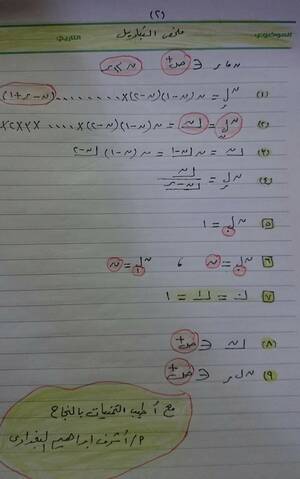 (٢)
الموضوع ملخص التباديل التاريخ
ن ، ر ∈ ص+ ن ≥ ر
(١) ن ل ر = ن(ن-١)(ن-٢)×........(ن-ر+١)
(٢) ن ل ن = ⌊ن = ن(ن-١)(ن-٢)×....×٣×٢×١
(٣) ⌊ن = ن ⌊ن-١ = ن(ن-١) ⌊ن-٢
(٤) ن ل ر = ⌊ن / ⌊ن-ر
٥ ن ل . = ١
٦ ن ل ١ = ن
٧ ⌊٠ = ⌊١ = ١
(٨) ⌊ن ∈ ص+
(٩) ن ل ر ∈ ص+
مع أطيب التمنيات بالنجاح
أ/ أشرف ابراهيم البغدادى